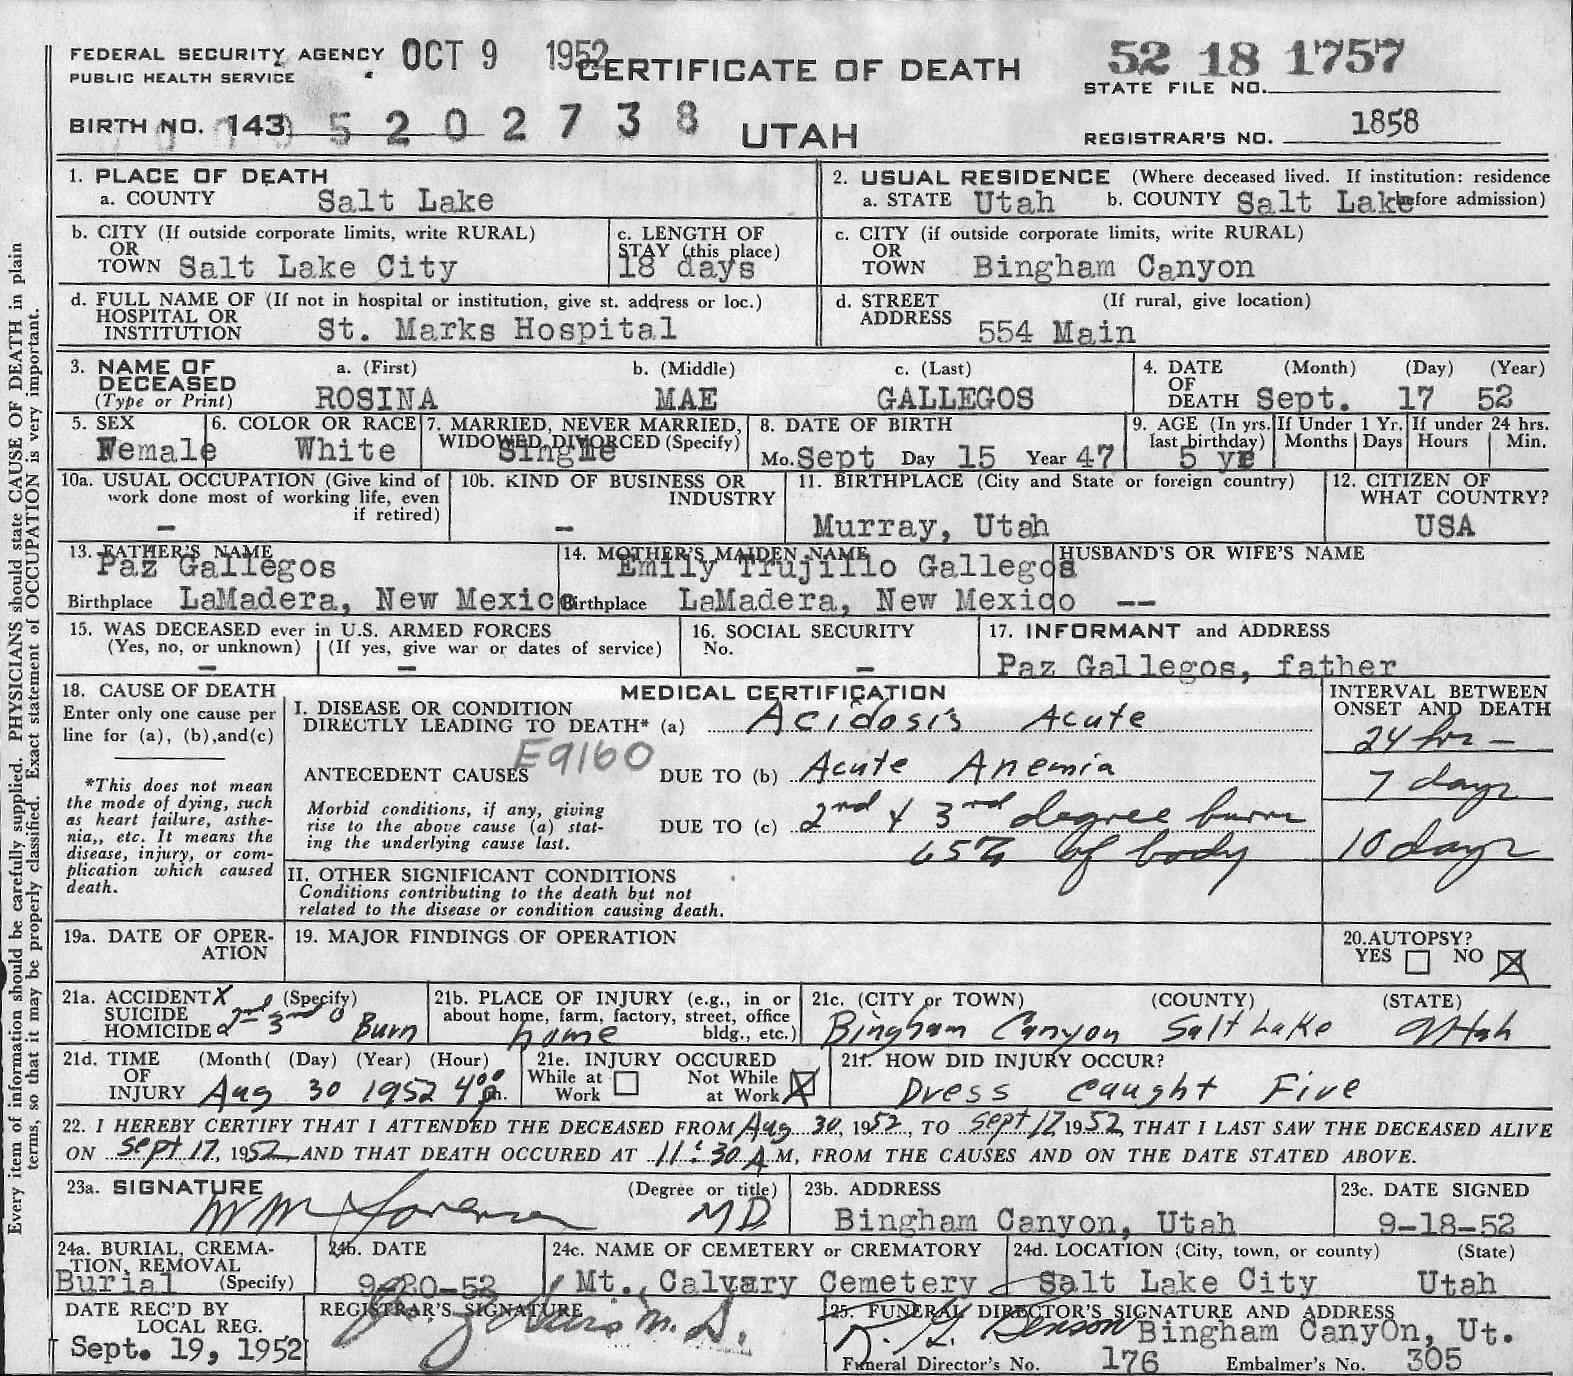 FEDERAL SECURITY AGENCY OCT 9 1952 CERTIFICATE OF DEATH 52 18 1757
PUBLIC HEALTH SERVICE
STATE FILE NO.
BIRTH NO. 143 5 2 0 2 7 3 8 UTAH REGISTRAR'S NO. 1858
1. PLACE OF DEATH
a. COUNTY Salt Lake
2. USUAL RESIDENCE (Where deceased lived. If institution: residence
a. STATE Utah b. COUNTY Salt Lake before admission)
b. CITY (If outside corporate limits, write RURAL)
OR
TOWN Salt Lake City
c. LENGTH OF
STAY (this place)
18 days
c. CITY (if outside corporate limits, write RURAL)
OR
TOWN Bingham Canyon
d. FULL NAME OF (If not in hospital or institution, give st. address or loc.)
HOSPITAL OR
INSTITUTION St. Marks Hospital
d. STREET (If rural, give location)
ADDRESS 554 Main
3. NAME OF a. (First) b. (Middle) c. (Last)
DECEASED
(Type or Print) ROSINA MAE GALLEGOS
4. DATE (Month) (Day) (Year)
OF
DEATH Sept. 17 52
5. SEX
Female
6. COLOR OR RACE
White
7. MARRIED, NEVER MARRIED,
WIDOWED, DIVORCED (Specify)
Single
8. DATE OF BIRTH
Mo. Sept Day 15 Year 47
9. AGE (In yrs.
last birthday)
5 yr
If Under 1 Yr.
Months Days
If under 24 hrs.
Hours Min.
10a. USUAL OCCUPATION (Give kind of
work done most of working life, even
if retired)
–
10b. KIND OF BUSINESS OR
INDUSTRY
–
11. BIRTHPLACE (City and State or foreign country)
Murray, Utah
12. CITIZEN OF
WHAT COUNTRY?
USA
13. FATHER'S NAME
Paz Gallegos
Birthplace LaMadera, New Mexico
14. MOTHER'S MAIDEN NAME
Emily Trujillo Gallegos
Birthplace LaMadera, New Mexico
HUSBAND'S OR WIFE'S NAME
--
15. WAS DECEASED ever in U.S. ARMED FORCES
(Yes, no, or unknown) (If yes, give war or dates of service)
– –
16. SOCIAL SECURITY
No.
–
17. INFORMANT and ADDRESS
Paz Gallegos, father
18. CAUSE OF DEATH
Enter only one cause per
line for (a), (b),and(c)
*This does not mean
the mode of dying, such
as heart failure, asthe-
nia,, etc. It means the
disease, injury, or com-
plication which caused
death.
MEDICAL CERTIFICATION
I. DISEASE OR CONDITION
DIRECTLY LEADING TO DEATH* (a) Acidosis Acute
E9160
ANTECEDENT CAUSES DUE TO (b) Acute Anemia
Morbid conditions, if any, giving
rise to the above cause (a) stat-
ing the underlying cause last.
DUE TO (c) 2nd & 3rd degree burn
65% of body
INTERVAL BETWEEN
ONSET AND DEATH
24 hrs –
7 days
10 days
II. OTHER SIGNIFICANT CONDITIONS
Conditions contributing to the death but not
related to the disease or condition causing death.
19a. DATE OF OPER-
ATION
19. MAJOR FINDINGS OF OPERATION
20.AUTOPSY?
YES NO X
21a. ACCIDENT X (Specify)
SUICIDE
HOMICIDE 2nd 3rd ° Burn
21b. PLACE OF INJURY (e.g., in or
about home, farm, factory, street, office
bldg., etc.)
home
21c. (CITY or TOWN) (COUNTY) (STATE)
Bingham Canyon Salt Lake Utah
21d. TIME (Month( (Day) (Year) (Hour)
OF
INJURY Aug 30 1952 4:00 p m.
21e. INJURY OCCURED
While at Work Not While at Work X
21f. HOW DID INJURY OCCUR?
Dress caught Fire
22. I HEREBY CERTIFY THAT I ATTENDED THE DECEASED FROM Aug 30, 1952, TO Sept 17, 1952, THAT I LAST SAW THE DECEASED ALIVE
ON Sept 17, 1952, AND THAT DEATH OCCURED AT 11:30 A M, FROM THE CAUSES AND ON THE DATE STATED ABOVE.
23a. SIGNATURE (Degree or title) MD
23b. ADDRESS
Bingham Canyon, Utah
23c. DATE SIGNED
9-18-52
24a. BURIAL, CREMA-
TION, REMOVAL
Burial (Specify)
24b. DATE
9-20-52
24c. NAME OF CEMETERY or CREMATORY
Mt. Calvary Cemetery
24d. LOCATION (City, town, or county) (State)
Salt Lake City Utah
DATE REC'D BY
LOCAL REG.
Sept. 19, 1952
REGISTRAR'S SIGNATURE
M. D.
25. FUNERAL DIRECTOR'S SIGNATURE AND ADDRESS
Benson Bingham Canyon, Ut.
Funeral Director's No. 176 Embalmer's No. 305
Every item of information should be carefully supplied. PHYSICIANS should state CAUSE OF DEATH in plain
terms, so that it may be properly classified. Exact statement of OCCUPATION is very important.